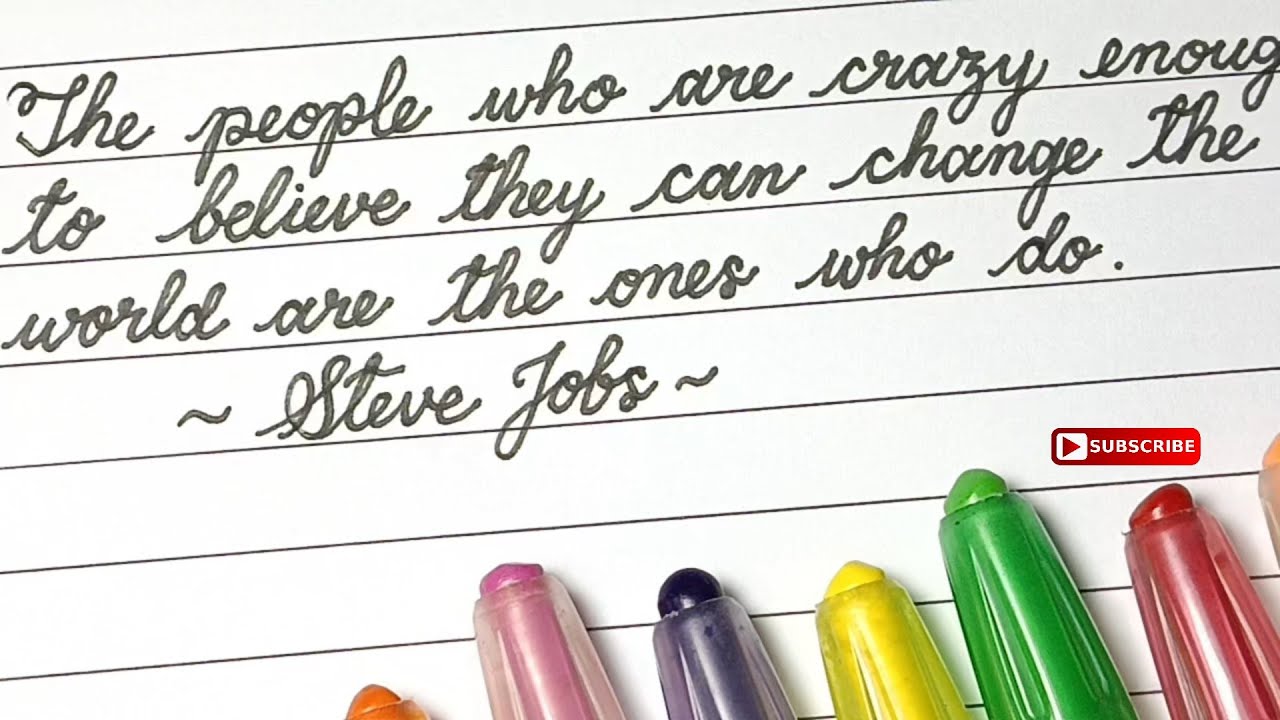 The people who are crazy enoug
to believe they can change the
world are the ones who do.
~ Steve Jobs ~
SUBSCRIBE